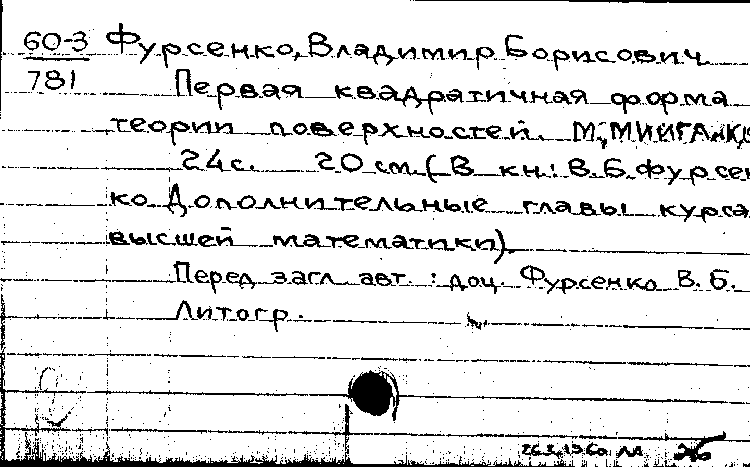 60-3 Фурсенко, Владимир Борисович.
781 Первая квадратичная форма
теории поверхностей. М., МИИГАиК,
24с. 20 см. (В кн.: В.Б. Фурсен
ко Дополнительные главы курса
высшей математики).
Перед загл. авт.: доц. Фурсенко В.Б.
Литогр.